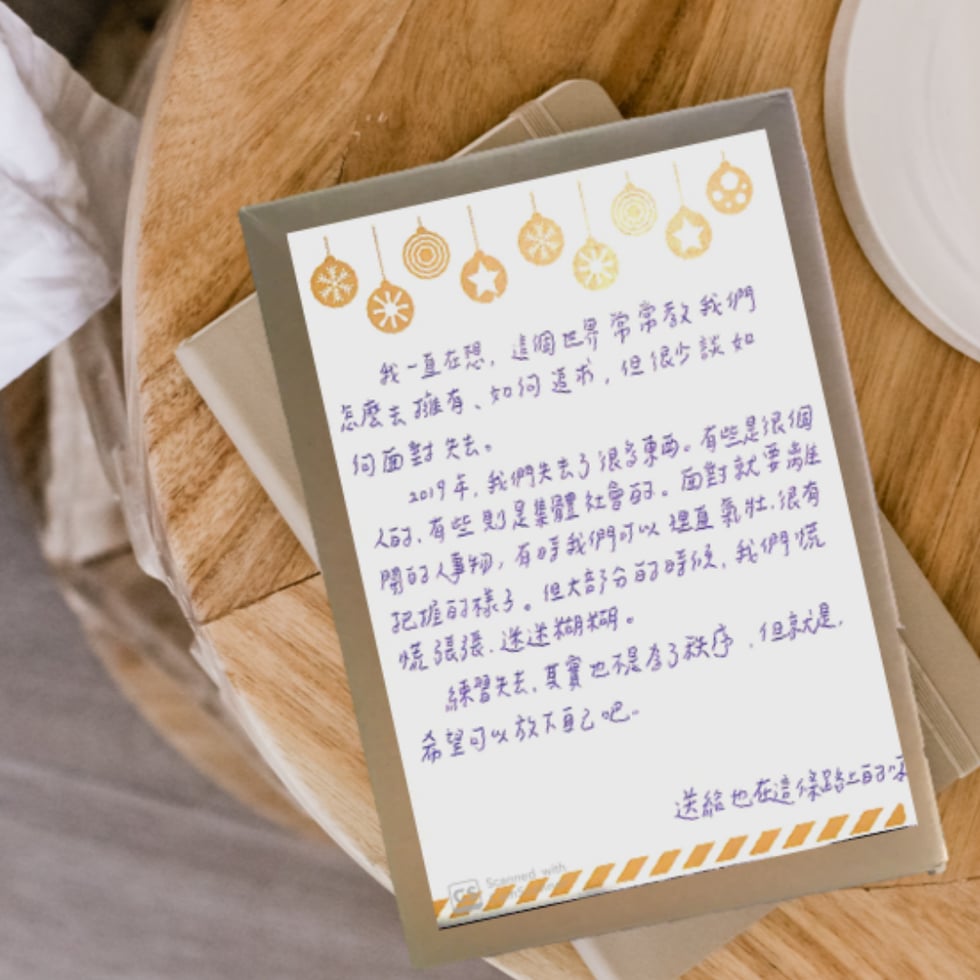 我一直在想，這個世界常常教我們
怎麼去擁有、如何追求，但很少談如
何面對失去。
2019年，我們失去了很多東西。有些是很個
人的，有些則是集體社會的。面對就要離
開的人事物，有時我們可以理直氣壯，很有
把握的樣子。但大部分的時候，我們慌
慌張張、迷迷糊糊。
練習失去，其實也不是為了秩序，但就是，
希望可以放下自己吧。
送給也在這條路上的
Scanned with
CS